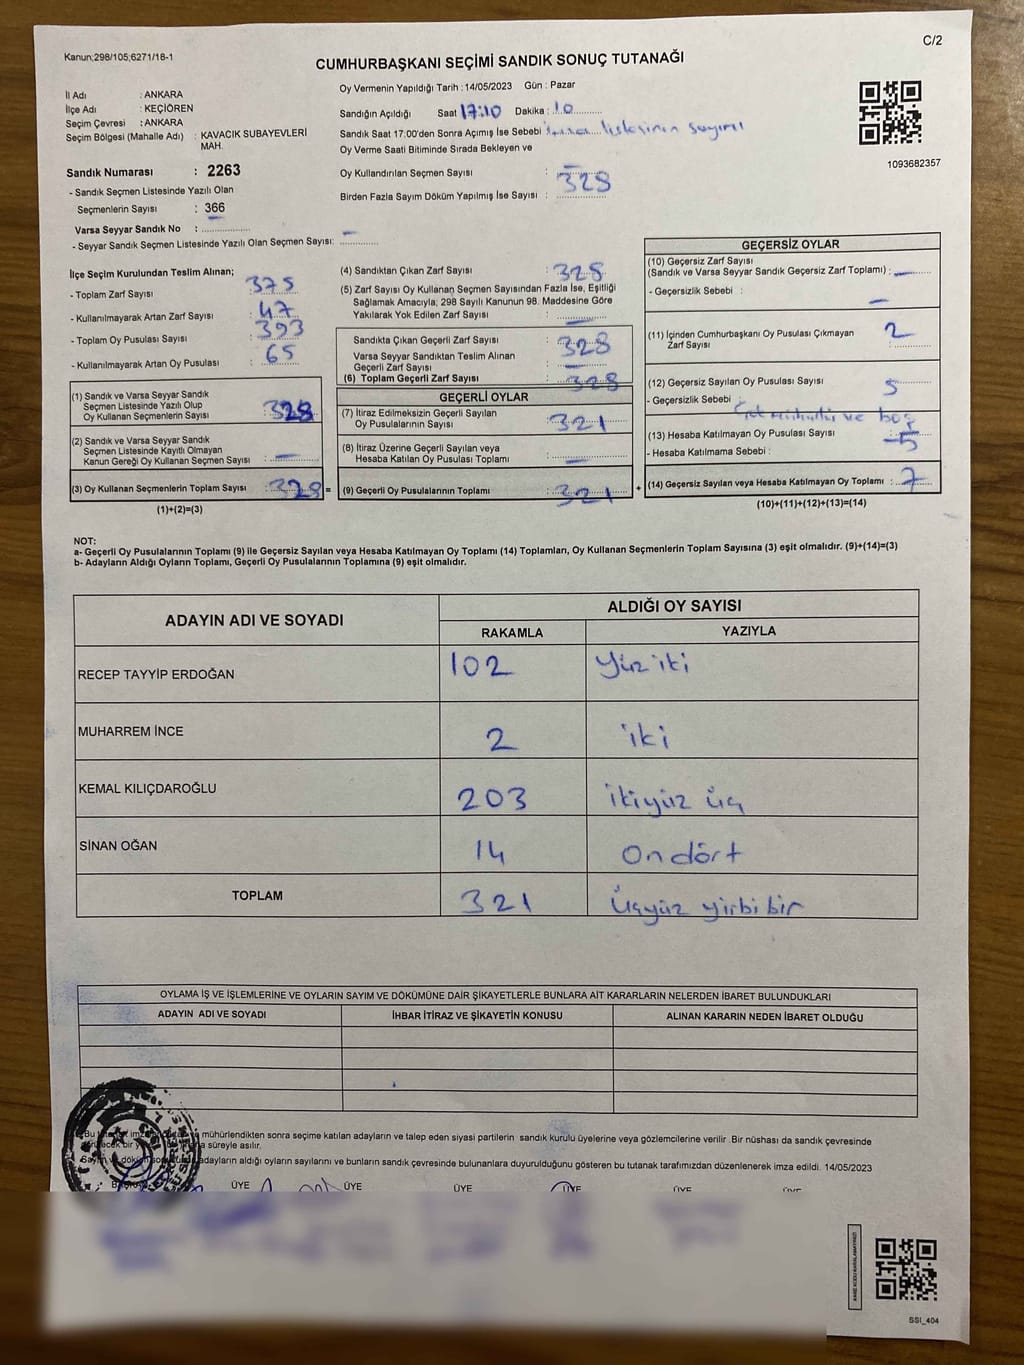 Kanun;298/105;6271/18-1
C/2
CUMHURBAŞKANI SEÇİMİ SANDIK SONUÇ TUTANAĞI
İl Adı : ANKARA
İlçe Adı : KEÇİÖREN
Seçim Çevresi : ANKARA
Seçim Bölgesi (Mahalle Adı) : KAVACIK SUBAYEVLERİ MAH.
Sandık Numarası : 2263
- Sandık Seçmen Listesinde Yazılı Olan
Seçmenlerin Sayısı : 366
Varsa Seyyar Sandık No : —
- Seyyar Sandık Seçmen Listesinde Yazılı Olan Seçmen Sayısı:
Oy Vermenin Yapıldığı Tarih :14/05/2023 Gün : Pazar
Sandığın Açıldığı Saat 17:10 Dakika : 10
Sandık Saat 17:00'den Sonra Açımış İse Sebebi : listesinin sayımı
Oy Verme Saati Bitiminde Sırada Bekleyen ve
Oy Kullandırılan Seçmen Sayısı : —
Birden Fazla Sayım Döküm Yapılmış İse Sayısı : 328
1093682357
İlçe Seçim Kurulundan Teslim Alınan;
- Toplam Zarf Sayısı : 375
- Kullanılmayarak Artan Zarf Sayısı : 47
- Toplam Oy Pusulası Sayısı : 393
- Kullanılmayarak Artan Oy Pusulası : 65
(1) Sandık ve Varsa Seyyar Sandık
Seçmen Listesinde Yazılı Olup
Oy Kullanan Seçmenlerin Sayısı : 328
(2) Sandık ve Varsa Seyyar Sandık
Seçmen Listesinde Kayıtlı Olmayan
Kanun Gereği Oy Kullanan Seçmen Sayısı : —
(3) Oy Kullanan Seçmenlerin Toplam Sayısı : 328 =
(1)+(2)=(3)
(4) Sandıktan Çıkan Zarf Sayısı : 328
(5) Zarf Sayısı Oy Kullanan Seçmen Sayısından Fazla İse, Eşitliği
Sağlamak Amacıyla; 298 Sayılı Kanunun 98. Maddesine Göre
Yakılarak Yok Edilen Zarf Sayısı : —
Sandıkta Çıkan Geçerli Zarf Sayısı : 328
Varsa Seyyar Sandıktan Teslim Alınan
Geçerli Zarf Sayısı : —
(6) Toplam Geçerli Zarf Sayısı : 328
GEÇERLİ OYLAR
(7) İtiraz Edilmeksizin Geçerli Sayılan
Oy Pusulalarının Sayısı : 321
(8) İtiraz Üzerine Geçerli Sayılan veya
Hesaba Katılan Oy Pusulası Toplamı : —
(9) Geçerli Oy Pusulalarının Toplamı : 321 +
GEÇERSİZ OYLAR
(10) Geçersiz Zarf Sayısı
(Sandık ve Varsa Seyyar Sandık Geçersiz Zarf Toplamı) : —
- Geçersizlik Sebebi : —
(11) İçinden Cumhurbaşkanı Oy Pusulası Çıkmayan
Zarf Sayısı : 2
(12) Geçersiz Sayılan Oy Pusulası Sayısı : 5
- Geçersizlik Sebebi : ve boş
(13) Hesaba Katılmayan Oy Pusulası Sayısı : 5
- Hesaba Katılmama Sebebi :
(14) Geçersiz Sayılan veya Hesaba Katılmayan Oy Toplamı : 7
(10)+(11)+(12)+(13)=(14)
NOT:
a- Geçerli Oy Pusulalarının Toplamı (9) ile Geçersiz Sayılan veya Hesaba Katılmayan Oy Toplamı (14) Toplamları, Oy Kullanan Seçmenlerin Toplam Sayısına (3) eşit olmalıdır. (9)+(14)=(3)
b- Adayların Aldığı Oyların Toplamı, Geçerli Oy Pusulalarının Toplamına (9) eşit olmalıdır.
ADAYIN ADI VE SOYADI ALDIĞI OY SAYISI
RAKAMLA YAZIYLA
RECEP TAYYİP ERDOĞAN 102 Yüz iki
MUHARREM İNCE 2 iki
KEMAL KILIÇDAROĞLU 203 ikiyüz üç
SİNAN OĞAN 14 On dört
TOPLAM 321 Üçyüz yirbi bir
OYLAMA İŞ VE İŞLEMLERİNE VE OYLARIN SAYIM VE DÖKÜMÜNE DAİR ŞİKAYETLERLE BUNLARA AİT KARARLARIN NELERDEN İBARET BULUNDUKLARI
ADAYIN ADI VE SOYADI İHBAR İTİRAZ VE ŞİKAYETİN KONUSU ALINAN KARARIN NEDEN İBARET OLDUĞU
Bu mühürlendikten sonra seçime katılan adayların ve talep eden siyasi partilerin sandık kurulu üyelerine veya gözlemcilerine verilir .Bir nüshası da sandık çevresinde
bir süreyle asılır.
adayların aldığı oyların sayılarını ve bunların sandık çevresinde bulunanlara duyurulduğunu gösteren bu tutanak tarafımızdan düzenlenerek imza edildi. 14/05/2023
ÜYE ÜYE ÜYE ÜYE ÜYE ÜYE
SSİ_404